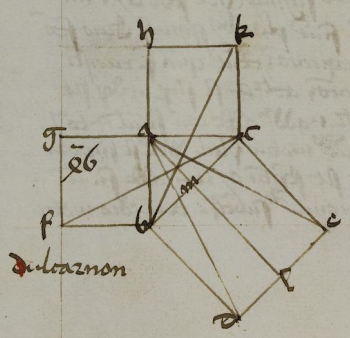 h k
g a c
f b
m
e
l
d
dulcarnon